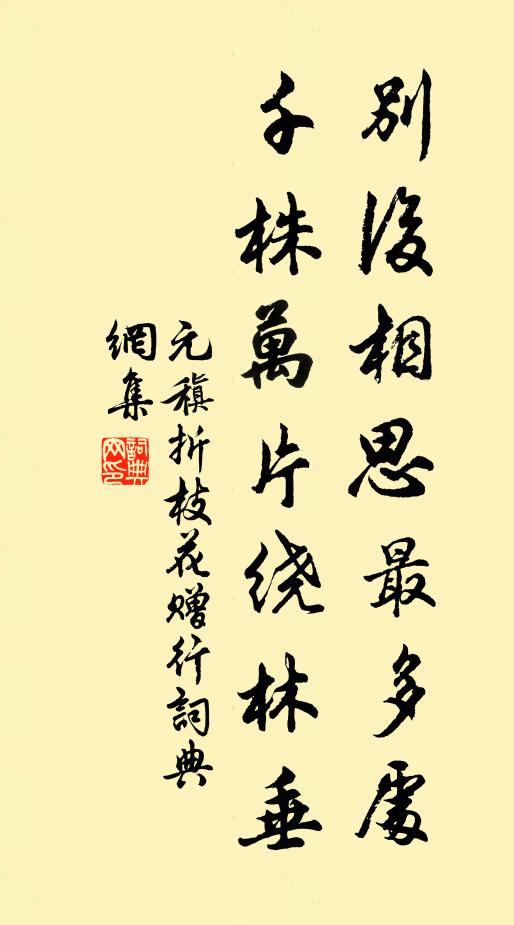 別後相思最多處
千株萬片绕林垂
元稹折枝花赠行詞典
網集
詞典网印